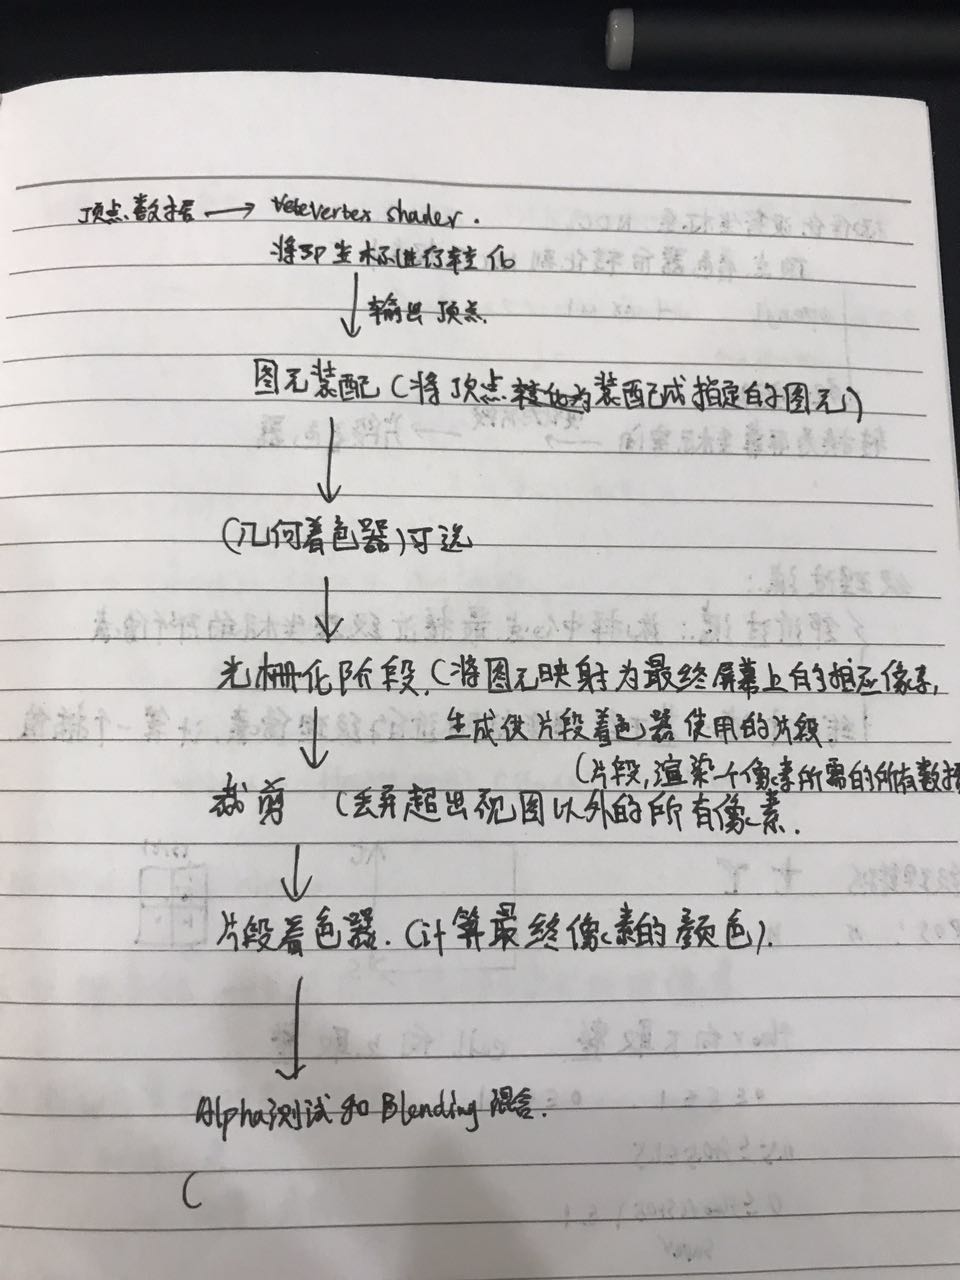 顶点数据 → vertex shader.
将3D坐标进行转化
输出顶点
图元装配(将顶点转化为装配成指定的图元)
(几何着色器)可选
光栅化阶段.(将图元映射为最终屏幕上的相应像素,
生成供片段着色器使用的片段.
(片段,渲染一个像素所需的所有数据
裁剪 (丢弃超出视图以外的所有像素.
片段着色器.(计算最终像素的颜色).
Alpha测试和Blending混合.
(